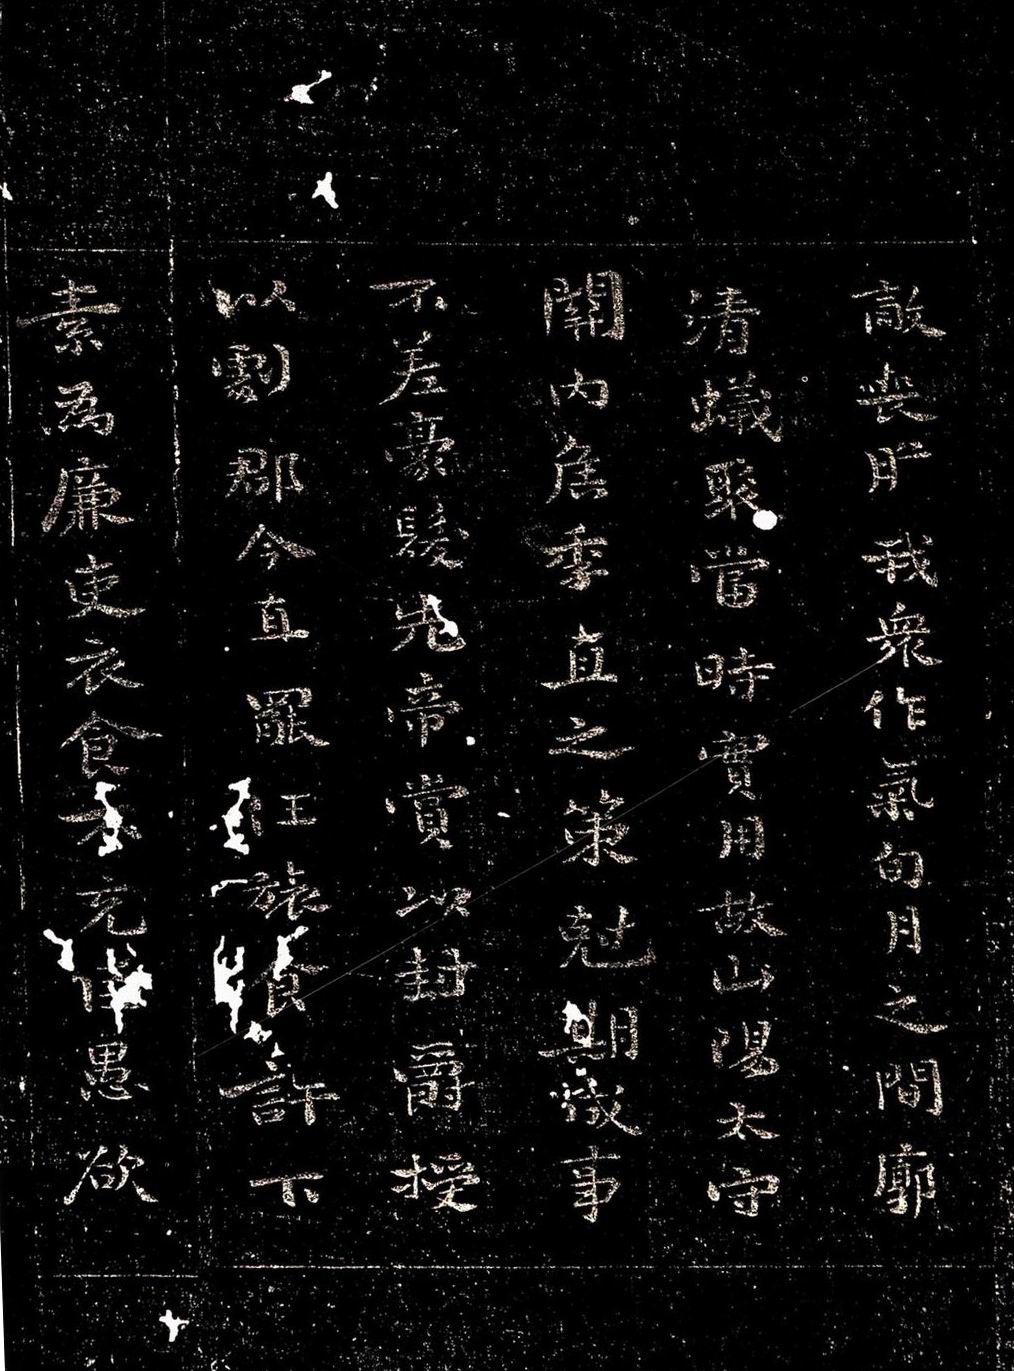 敵喪膽我衆作氣旬月之間廓
清蟻聚當時實用故山陽太守
關内侯季直之策尅期成事
不差豪髮先帝賞以封爵授
以劇郡今直罷任旅食許下
素為廉吏衣食不充臣愚欲